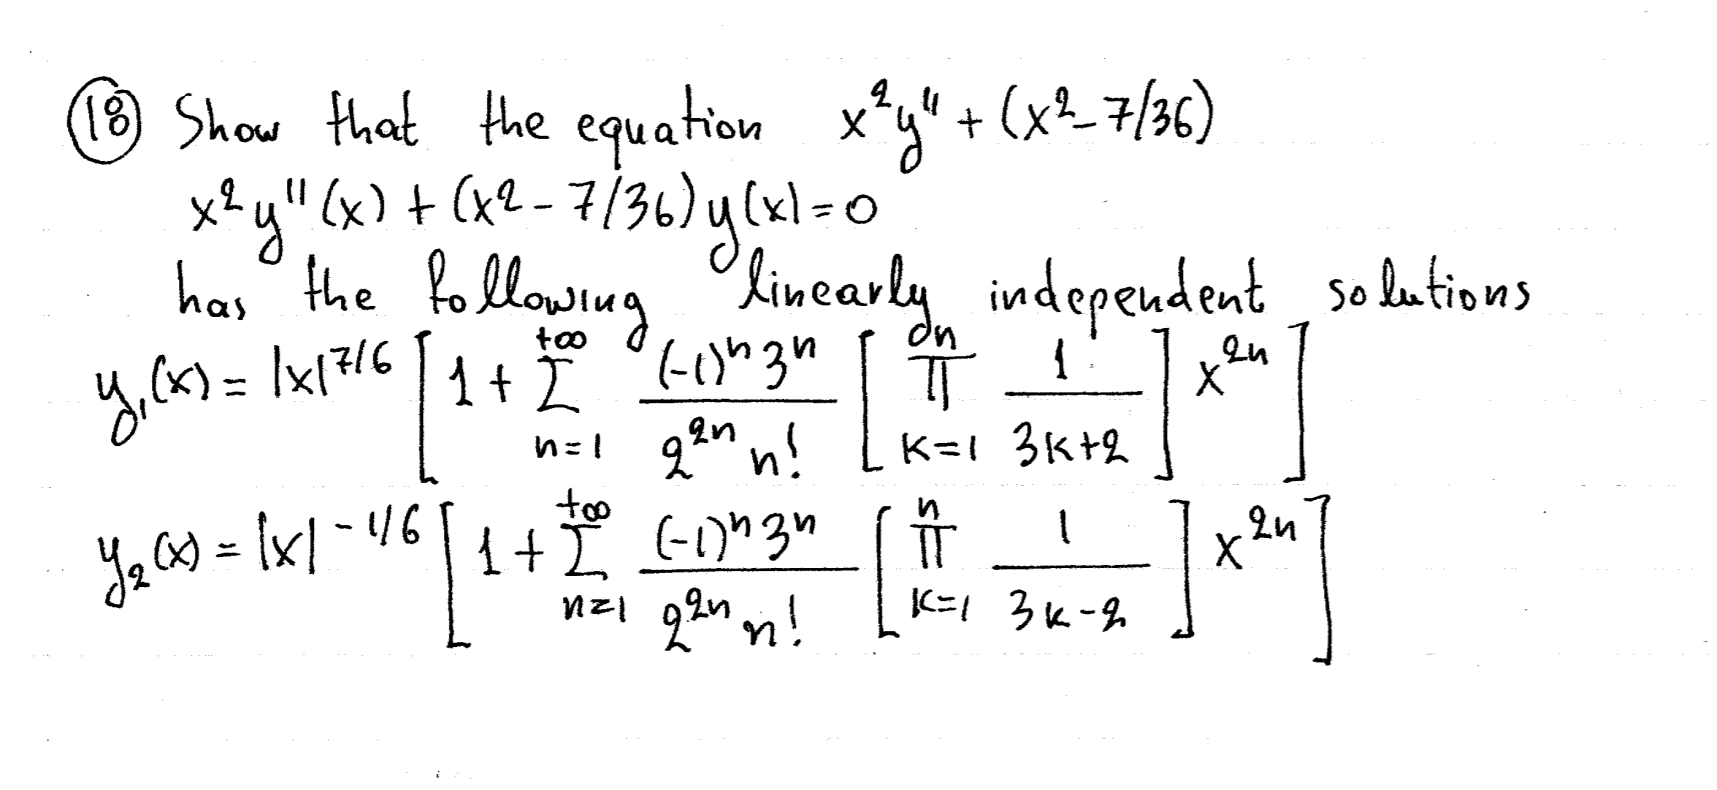 (18) Show that the equation x²y'' + (x²-7/36)
x²y''(x) + (x²-7/36)y(x)=0
has the following linearly independent solutions
y₁(x) = |x|^{7/6} [ 1 + \sum_{n=1}^{+∞} \frac{(-1)^n 3^n}{2^{2n} n!} [ \prod_{k=1}^{n} \frac{1}{3k+2} ] x^{2n} ]
y₂(x) = |x|^{-1/6} [ 1 + \sum_{n=1}^{+∞} \frac{(-1)^n 3^n}{2^{2n} n!} [ \prod_{k=1}^{n} \frac{1}{3k-2} ] x^{2n} ]